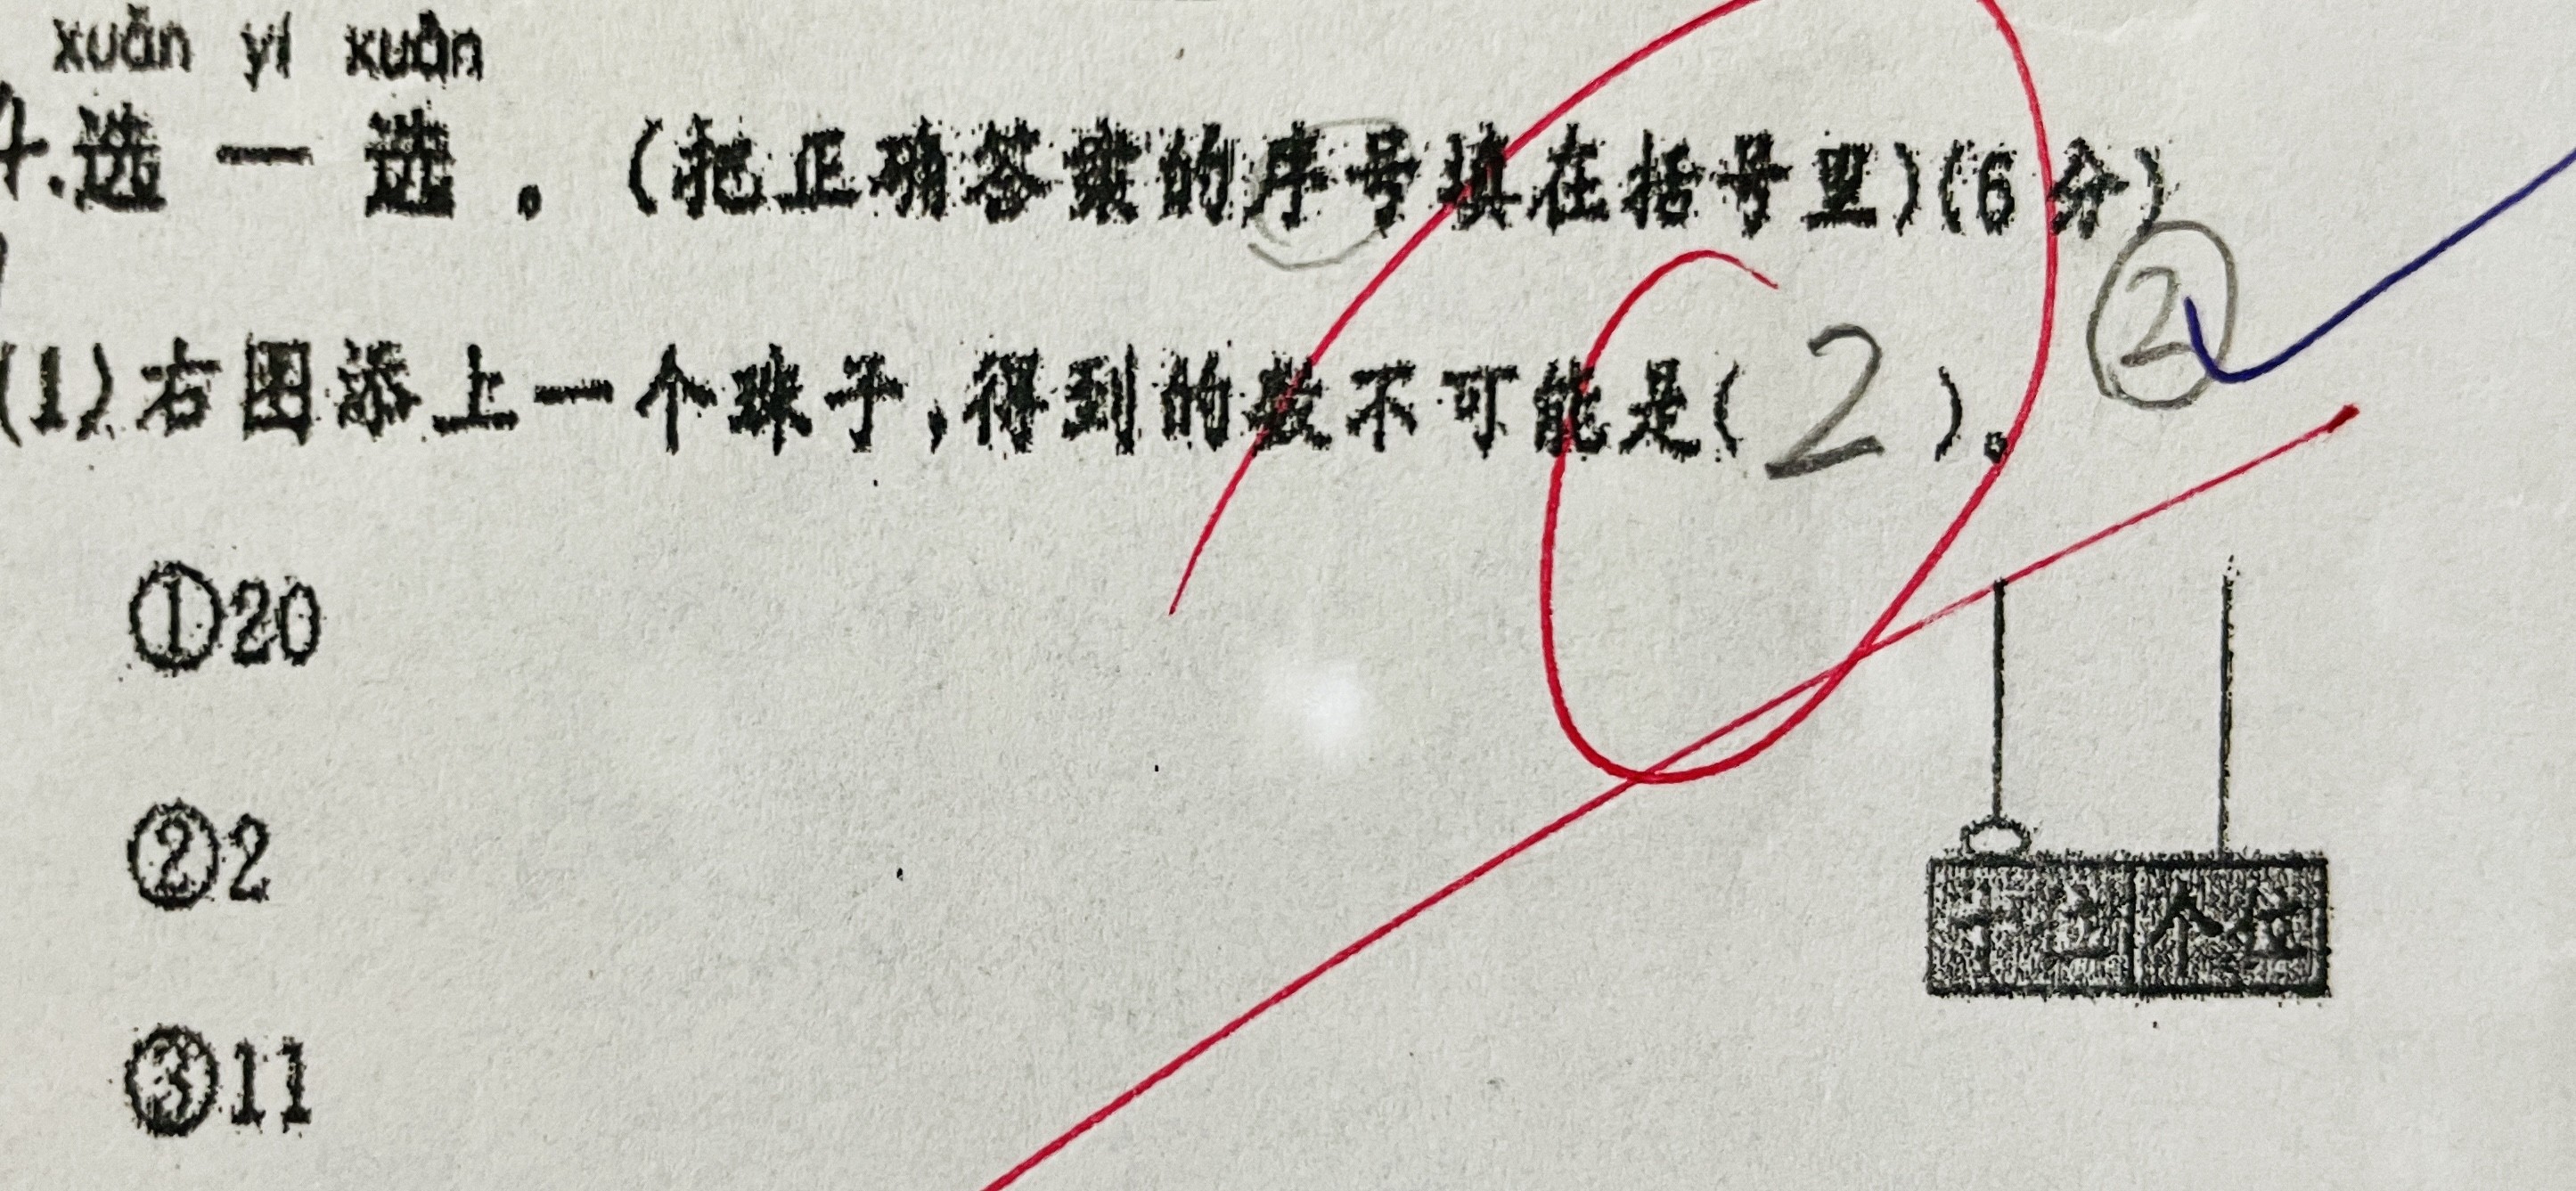 xuǎn yi xuǎn
4.选一选。(把正确答案的序号填在括号里)(6分)
(1)右图添上一个珠子,得到的数不可能是(2)。 ②
①20
②2
③11
十位 个位